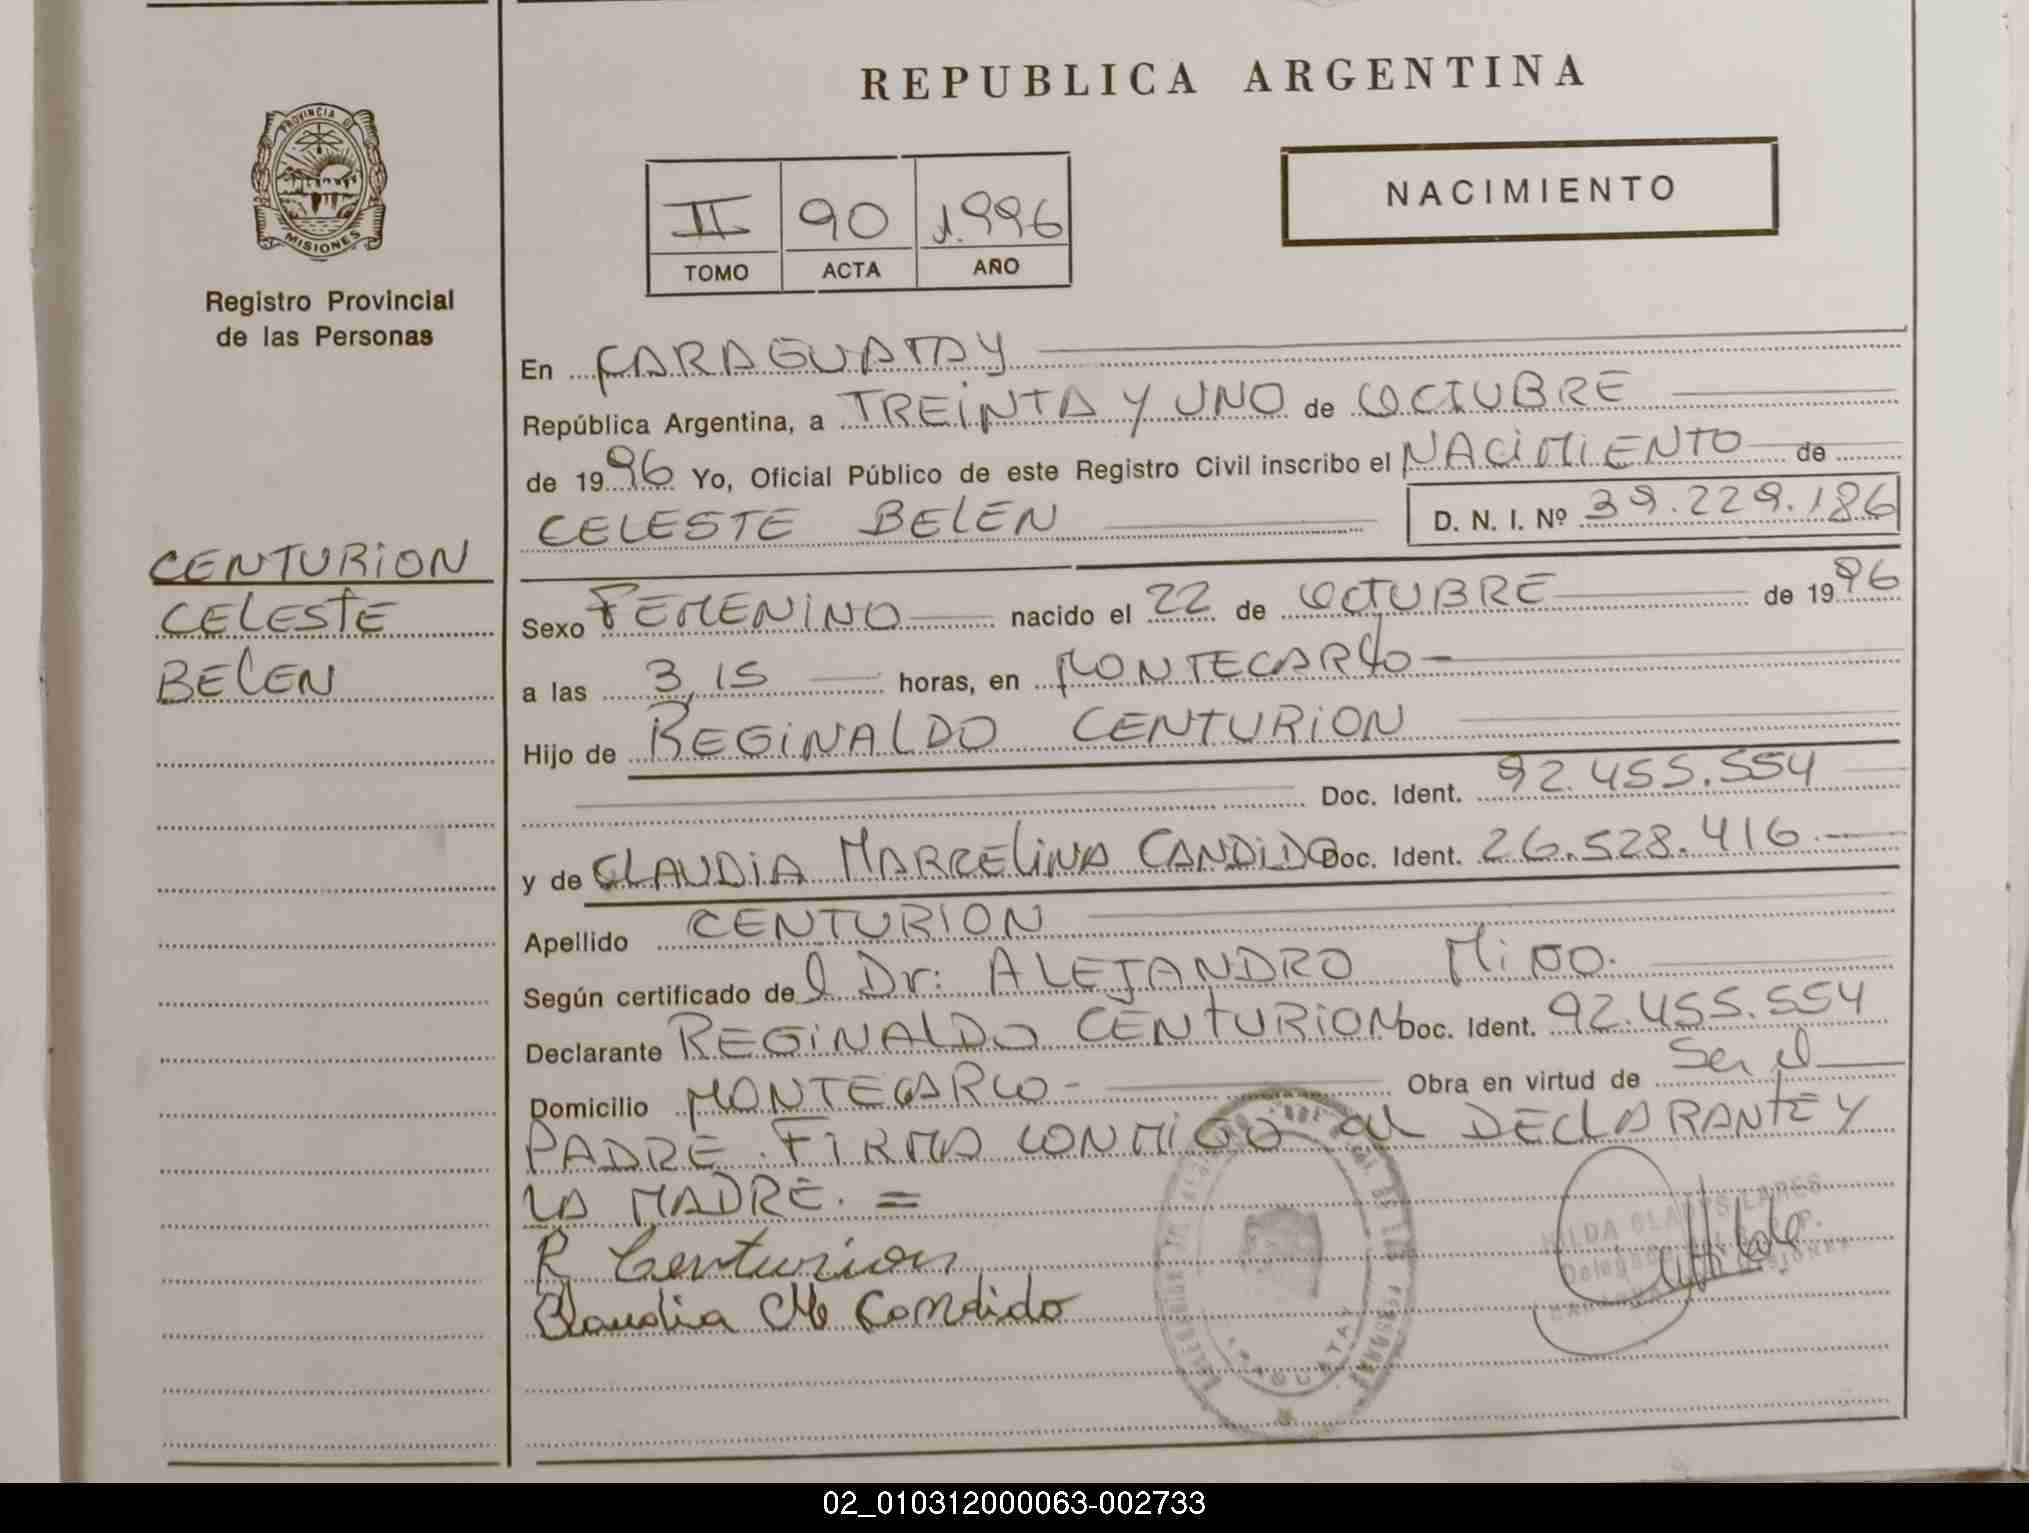 REPUBLICA ARGENTINA
PROVINCIA DE
MISIONES
Registro Provincial
de las Personas
II 90 1.996
TOMO ACTA AÑO
NACIMIENTO
CENTURION
CELESTE
BELEN
En CARAGUATAY
República Argentina, a TREINTA Y UNO de OCTUBRE
de 1996 Yo, Oficial Público de este Registro Civil inscribo el NACIMIENTO de
CELESTE BELEN D. N. I. Nº 39.229.186
Sexo FEMENINO nacido el 22 de OCTUBRE de 1996
a las 3,15 horas, en MONTECARLO
Hijo de REGINALDO CENTURION
Doc. Ident. 92.455.554
y de CLAUDIA MARCELINA CANDIDO Doc. Ident. 26.528.416
Apellido CENTURION
Según certificado del Dr: ALEJANDRO
Declarante REGINALDO CENTURION Doc. Ident. 92.455.554
Domicilio MONTECARLO Obra en virtud de Ser el
PADRE. FIRMA CONMIGO el DECLARANTE Y
LA MADRE. =
R Centurion
Claudia M Candido
HILDA GLADYS LARES
02_010312000063-002733